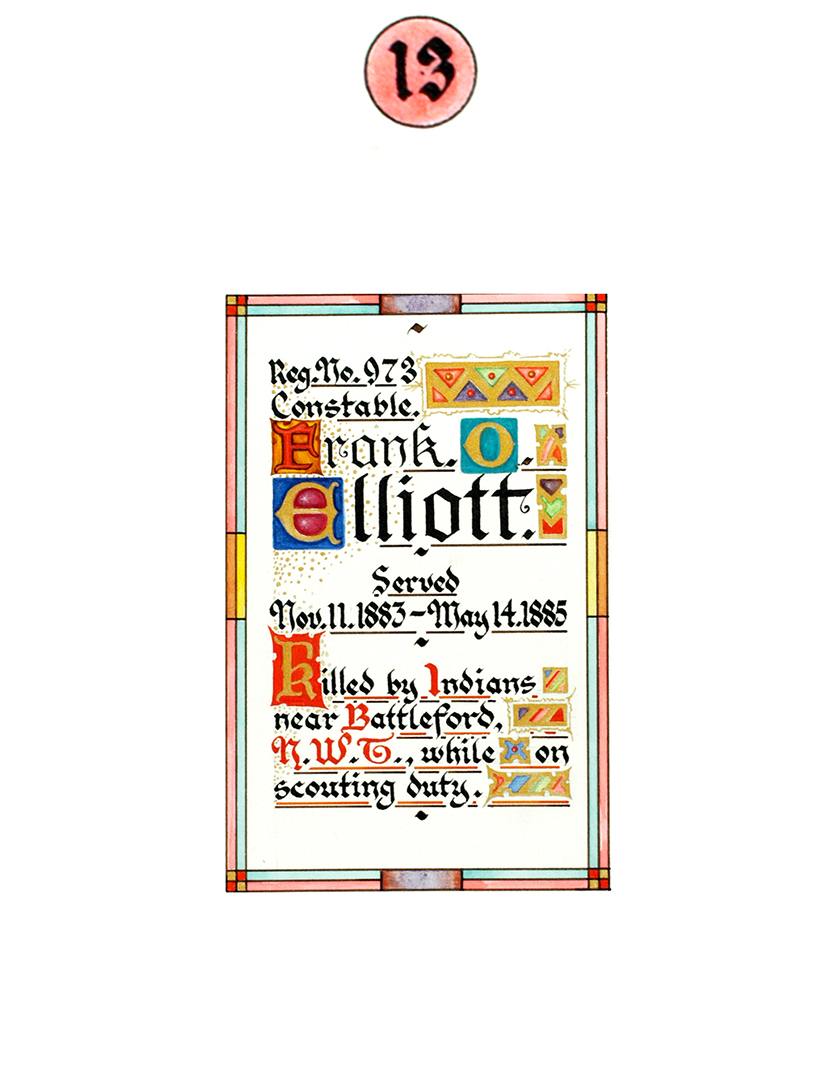 13
Reg. No. 973
Constable.
Frank. O.
Elliott.
Served
Nov. 11. 1883 - May 14. 1885
Killed by Indians
near Battleford,
N.W.T., while on
scouting duty.